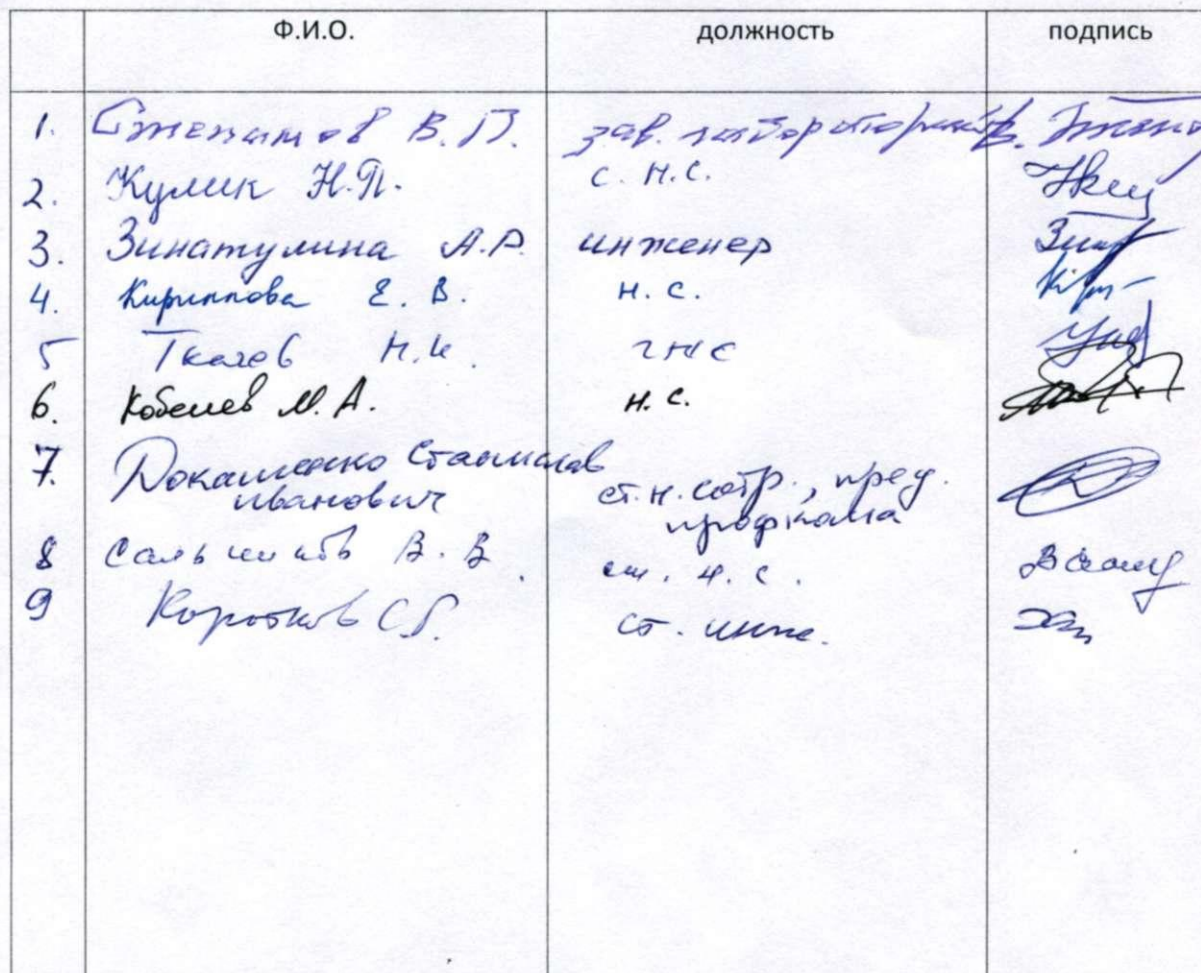 Ф.И.О. должность подпись
1. В.П. зав. лабораторией
2. Кулик Н.П. с.н.с.
3. Зинатулина А.Р. инженер
4. Кириллова Е. В. н. с.
5 Ткалев Н.И. гнс
6. Кобелев М.А. н.с.
7. Докашенко Станислав
иванович ст.н.сотр., пред.
профкома
8 В. В. ст. н. с.
9 Коротков С.Г. ст. инж.